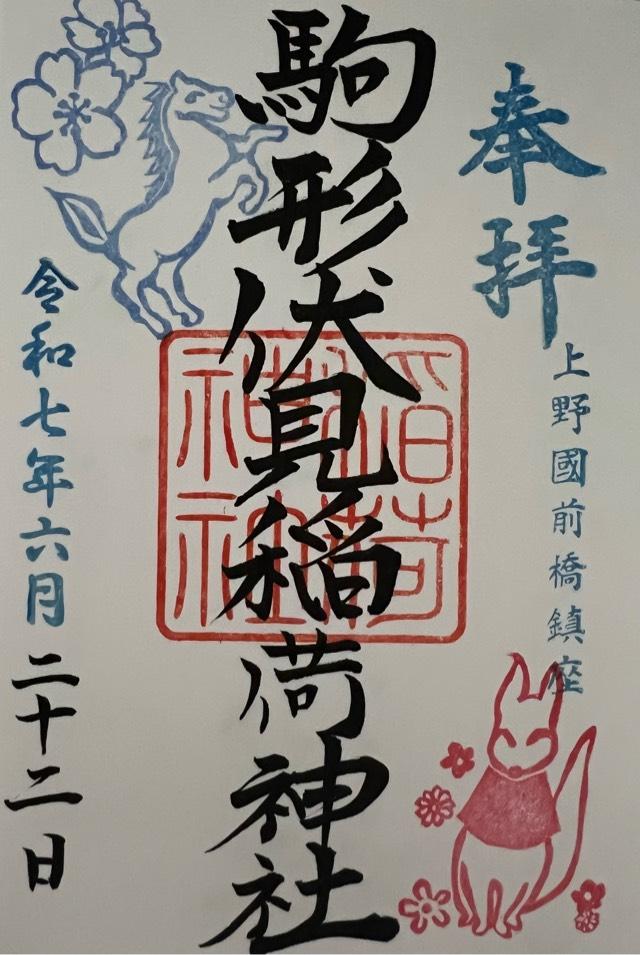 奉拝
上野國前橋鎮座
駒形伏見稲荷神社
稲荷
神社
令和七年六月二十二日